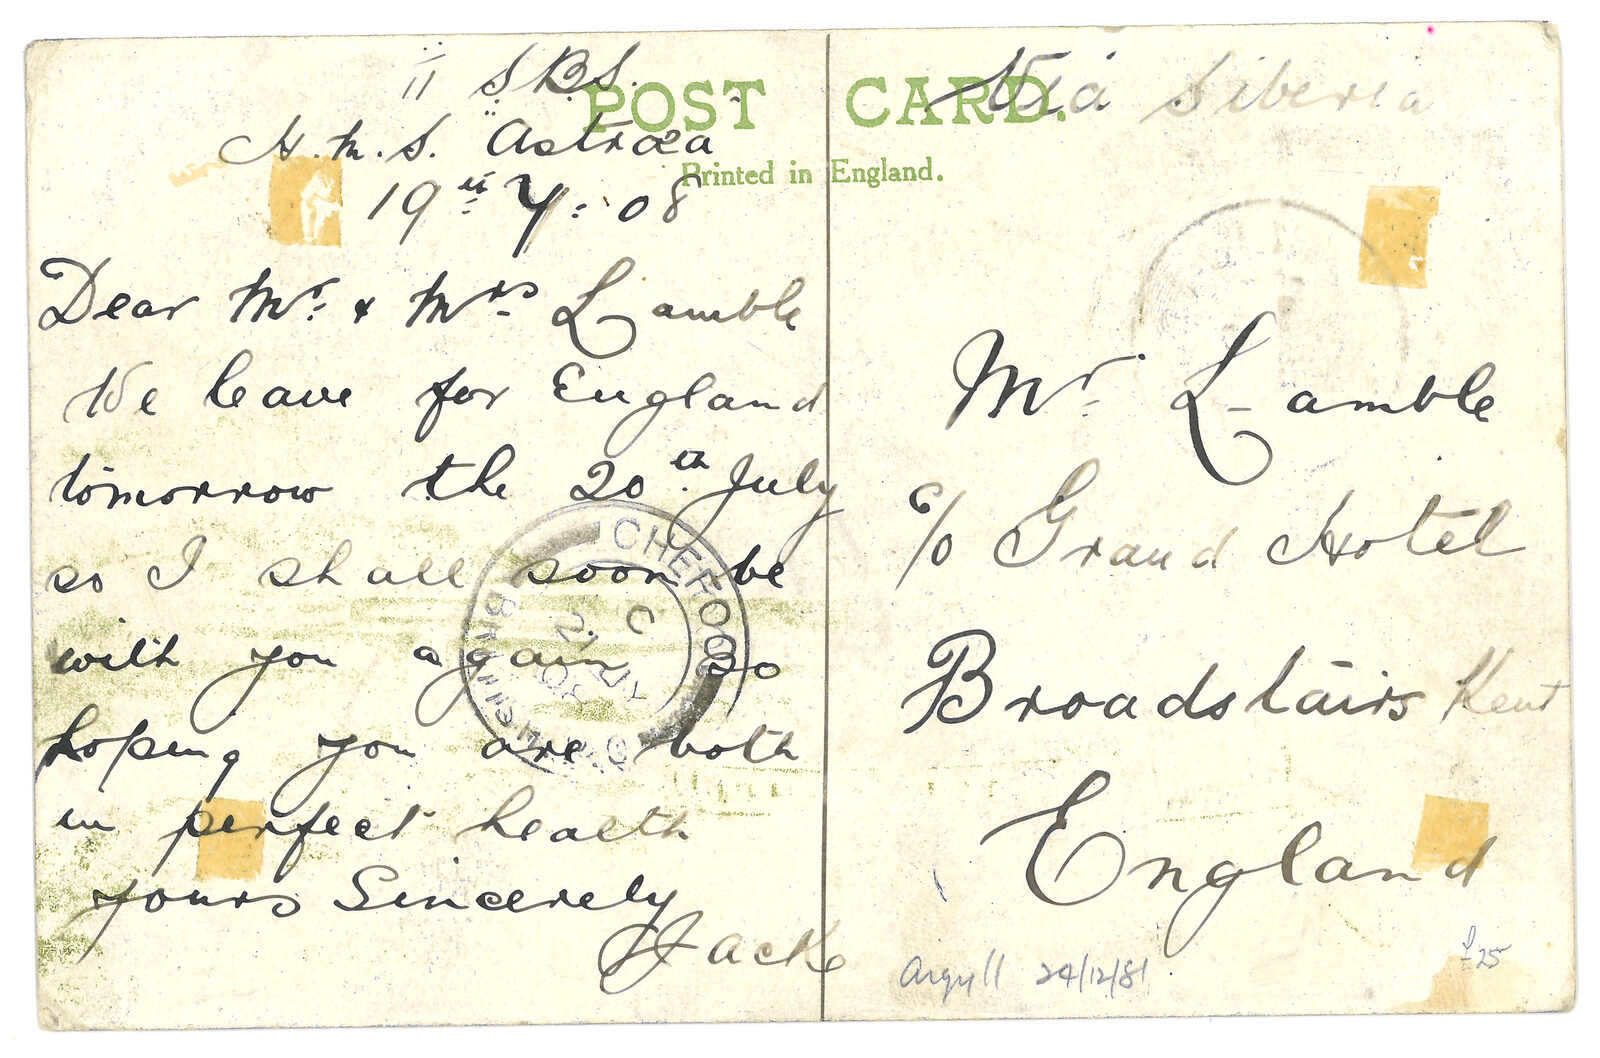 11 S.B.S.
H.M.S. Astraea
19th 7:08
POST CARD.
Printed in England.
Via Siberia
Dear Mr. & Mrs Lamble
We leave for England
tomorrow the 20th July
so I shall soon be
with you again so
hoping you are both
in perfect health
yours Sincerely
Jack
CHEFOO
C
21
08
Mr. Lamble
c/o Grand Hotel
Broadstairs Kent
England
Argyll 24/12/81
£25